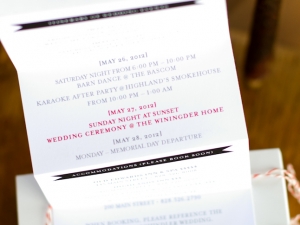 ITINERARY OF WEDDING EVENTS
[MAY 26, 2012]
SATURDAY NIGHT FROM 6:00 PM - 10:00 PM
BARN DANCE @ THE BASCOM
KARAOKE AFTER PARTY @ HIGHLAND'S SMOKEHOUSE
FROM 10:00 PM - 1:00 AM
[MAY 27, 2012]
SUNDAY NIGHT AT SUNSET
WEDDING CEREMONY @ THE WININGDER HOME
[MAY 28, 2012]
MONDAY - MEMORIAL DAY DEPARTURE
ACCOMMODATIONS (PLEASE BOOK SOON)
MAIN STREET
BOOKING, PLEASE REFERENCE THE
WEDDING